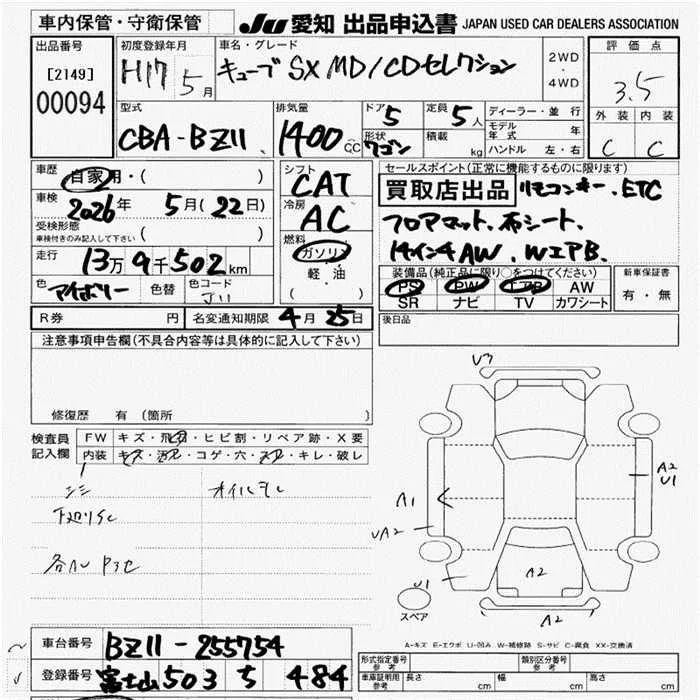 車内保管・守衛保管
JU 愛知 出品申込書 JAPAN USED CAR DEALERS ASSOCIATION
出品番号
[2149]
00094
初度登録年月
H17 5月
車名・グレード
キューブ SX MD/CDセレクション
2WD
・
4WD
評価点
3.5
外装 内装
C C
型式
CBA-BZ11
排気量
1400 CC
ドア 5
形状 ワゴン
定員 5人
積載 kg
ディーラー・並行
モデル年式 年
ハンドル 左・右
車歴
自家用・( )
車検
2026年 5月(22日)
受検形態
車検付きのみ記入して下さい ( )
走行
13万9千502km
色 アイボリー 色替 色コード J11
シフト
CAT
冷房
AC
燃料
ガソリン
軽油
( )
セールスポイント(正常に機能するものに限ります)
買取店出品 リモコンキー. ETC
フロアマット. 布シート.
14インチAW. WエアB.
装備品(純正品に限り○をつけてください)
PS PW エアB AW
SR ナビ TV カワシート
新車保証書
有・無
R券 円 名変通知期限 4月25日
後日品
注意事項申告欄(不具合内容等は具体的に記入して下さい)
修復歴 有 (箇所 )
検査員
記入欄
FW キズ・飛石・ヒビ割・リペア跡・X要
内装 キズ・汚れ・コゲ・穴・スレ・キレ・破レ
下廻りSC
V3
A1
UA2
U1
A2
U1
A2
A2
スペア
A-キズ E-エクボ U-凹み W-補修跡 S-サビ C-腐食 XX-交換済
車台番号 BZ11-255754
登録番号 富士山503 ち 484
形式指定番号 参考
類別区分番号 参考
車庫証明用 参考 長さ cm 幅 cm 高さ cm